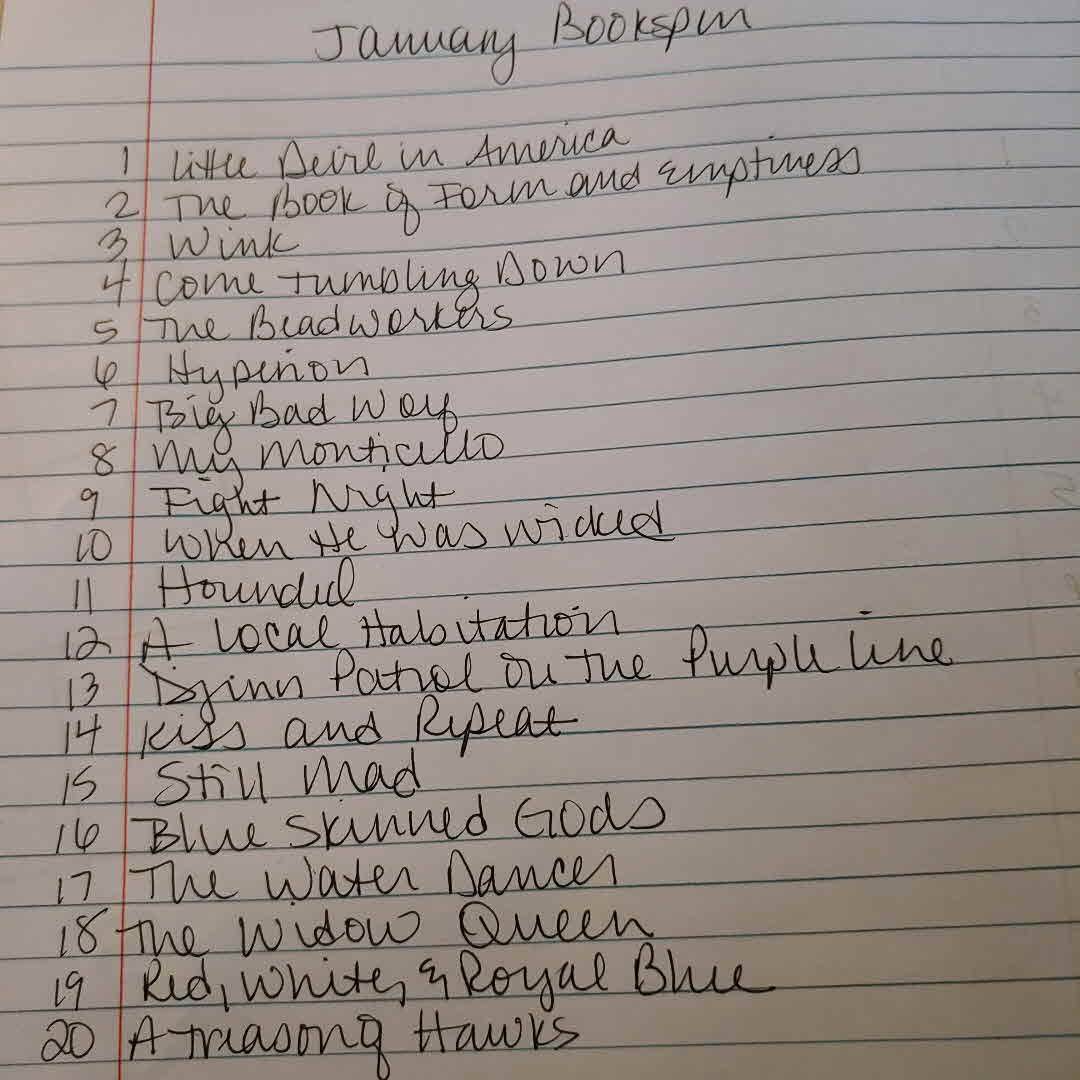 January Bookspin
1 Little Devil in America
2 The Book of Form and Emptiness
3 Wink
4 Come Tumbling Down
5 The Beadworkers
6 Hyperion
7 Big Bad Wolf
8 My Monticello
9 Fight Night
10 When He Was Wicked
11 Hounded
12 A Local Habitation
13 Djinn Patrol on the Purple Line
14 Kiss and Repeat
15 Still Mad
16 Blue Skinned Gods
17 The Water Dancer
18 The Widow Queen
19 Red, White, & Royal Blue
20 A Treason of Hawks